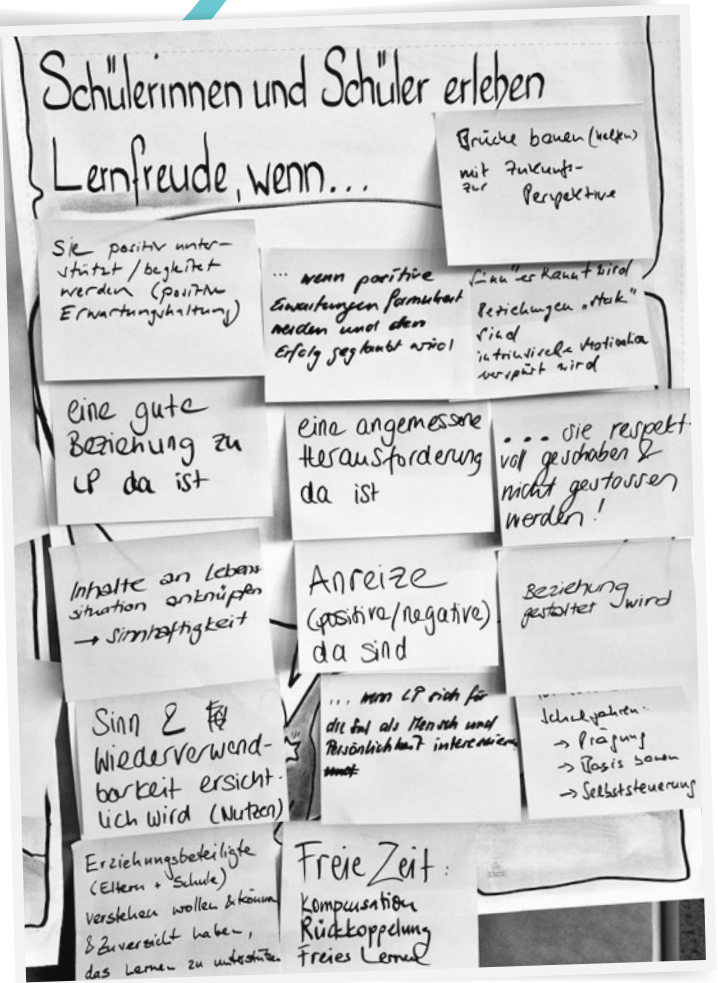 Schülerinnen und Schüler erleben
Lernfreude, wenn...
Brücke bauen (helfen)
mit Zukunfts-
zur Perspektive
Sie positiv unter-
stützt / begleitet
werden (positive
Erwartungshaltung)
... wenn positive
Erwartungen formuliert
werden und den
Erfolg geglaubt wird
"Sinn" erkannt wird
Beziehungen "stark"
sind
intrinsische Motivation
verspürt wird
eine gute
Beziehung zu
LP da ist
eine angemessene
Herausforderung
da ist
... sie respekt-
voll geschoben &
nicht gestossen
werden!
Inhalte an Lebens-
situation anknüpfen
→ Sinnhaftigkeit
Anreize
(positive/negative)
da sind
Beziehung
gestaltet wird
Sinn &
Wiederverwend-
barkeit ersicht-
lich wird (Nutzen)
... wenn LP sich für
die SuS als Mensch und
Persönlichkeit interessieren
Schuljahren.
→ Prägung
→ Basis bauen
→ Selbststeuerung
Erziehungsbeteiligte
(Eltern + Schule)
verstehen wollen & können
& Zuversicht haben,
das Lernen zu unterstützen
Freie Zeit:
Kompensation
Rückkoppelung
Freies Lernen